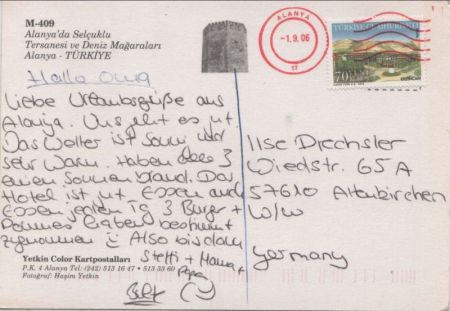 M-409
Alanya'da Selçuklu
Tersanesi ve Deniz Mağaraları
Alanya - TÜRKİYE
Hallo Oma
Liebe Urlaubsgrüße aus
Alanja. Uns geht es gut
Das Wetter ist Sonne
sehr Warm. Haben alle 3
einen Sonnenbrand. Das
Hotel ist gut Essen auch
Essen jeden Tag 3 Burger +
Pommes haben bestimmt
zugenommen Also bis dann
Steffi + Mama +
Papa
Yetkin Color Kartpostalları
P.K. 4 Alanya Tel: (242) 513 16 47 • 513 33 60
Fotoğraf: Haşim Yetkin
ALANYA
-1.9.06
17
TÜRKİYE CUMHURİYETİ
70
Ilse Diechsler
Wiedstr. 65A
57610 Altenkirchen
W/W
Germany